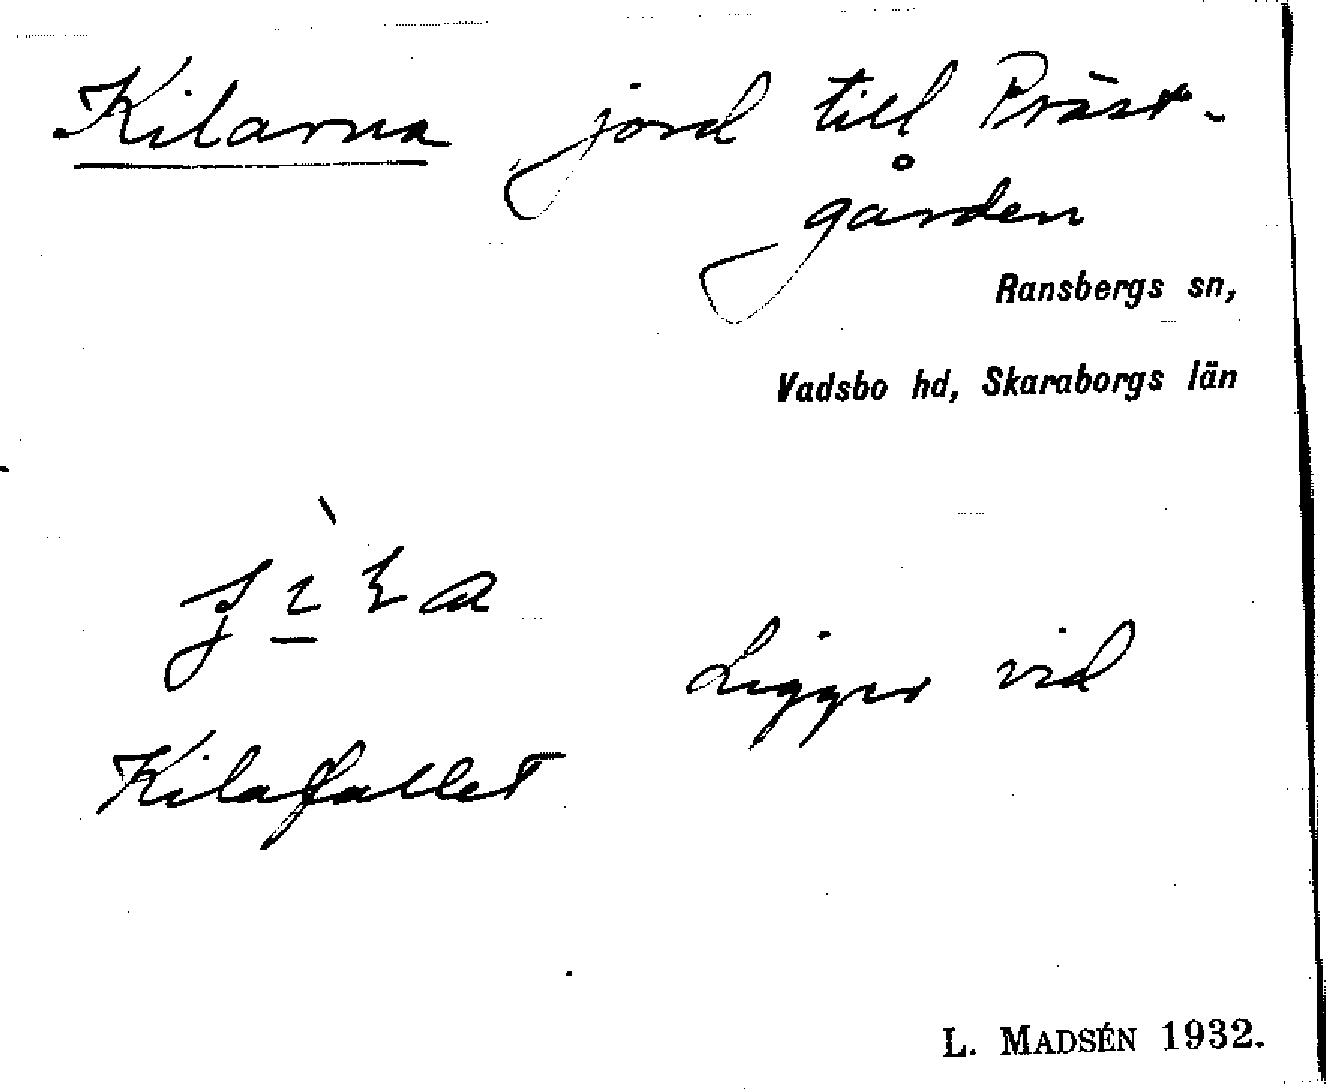 Kilarna jord till Präst-
gården
Ransbergs sn,
Vadsbo hd, Skaraborgs län
Ligger vid
Kilafallet
L. MADSÉN 1932.